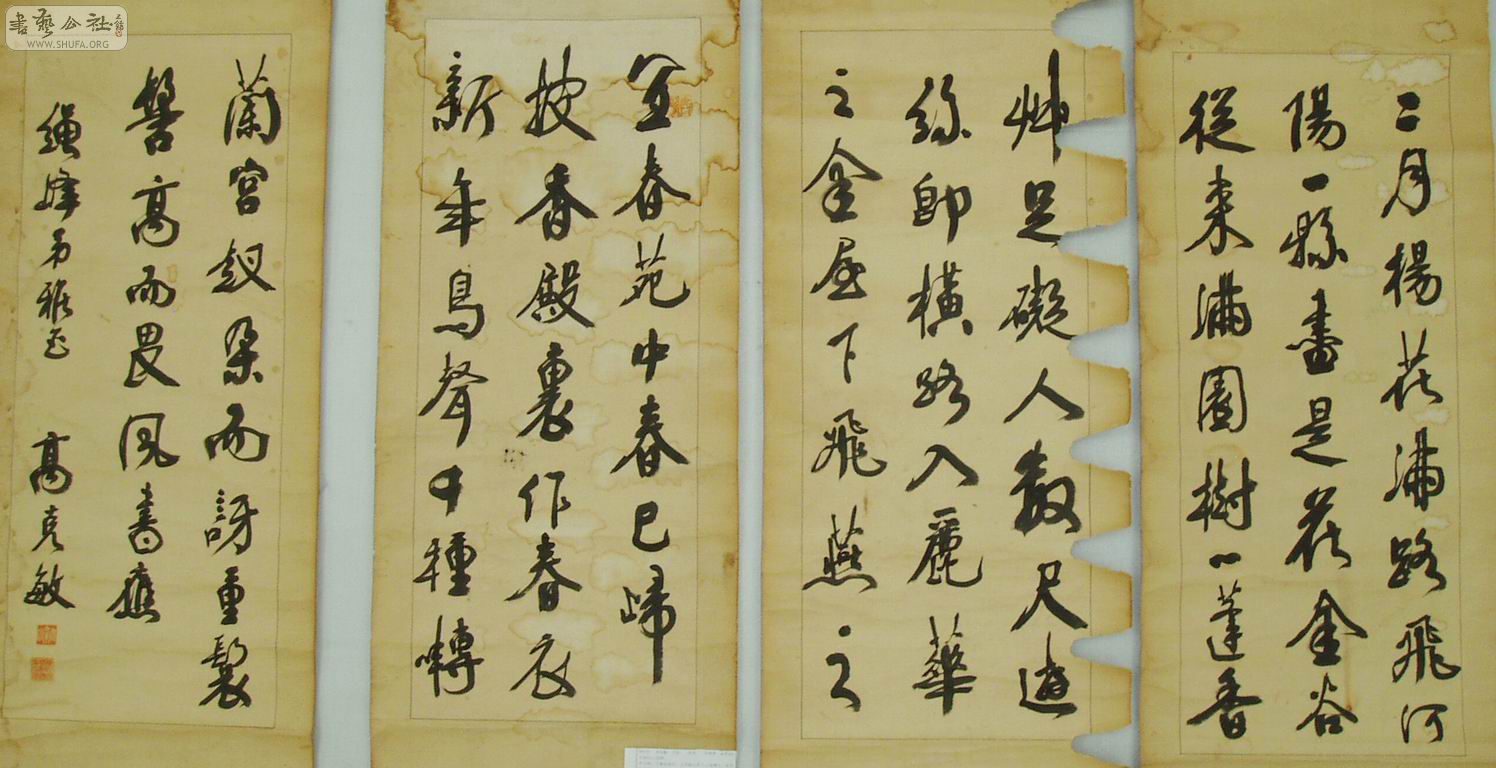 書藝公社
WWW.SHUFA.ORG
二月楊花滿路飛河
陽一縣盡是花金谷
從來滿園樹一蓬香
艸足礙人數尺遊
絲即橫路入麗華
之金屋下飛燕之
宜春苑中春已歸
披香殿裏作春衣
新年鳥聲千種囀
蘭宮釵朵而訝重鬟
髻高而畏風書應
弟雅正 高克敏